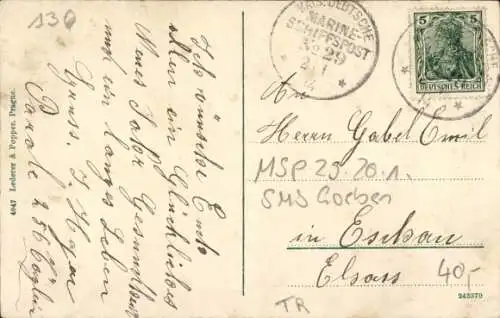 130
4947 Lederer & Popper, Prague.
Ich wünsche Euch
allen ein Glückliches
Neues Jahr Gesundheit
und ein langes Leben
Gruss. J.
Parole 256
KAIS. DEUTSCHE
MARINE-
SCHIFFSPOST
No 29
5 5
DEUTSCHES REICH
An
Herrn Gabel Emil
MSP 29.20.1.
SMS Goeben
in Eschau
Elsass
40,-
TR
243370